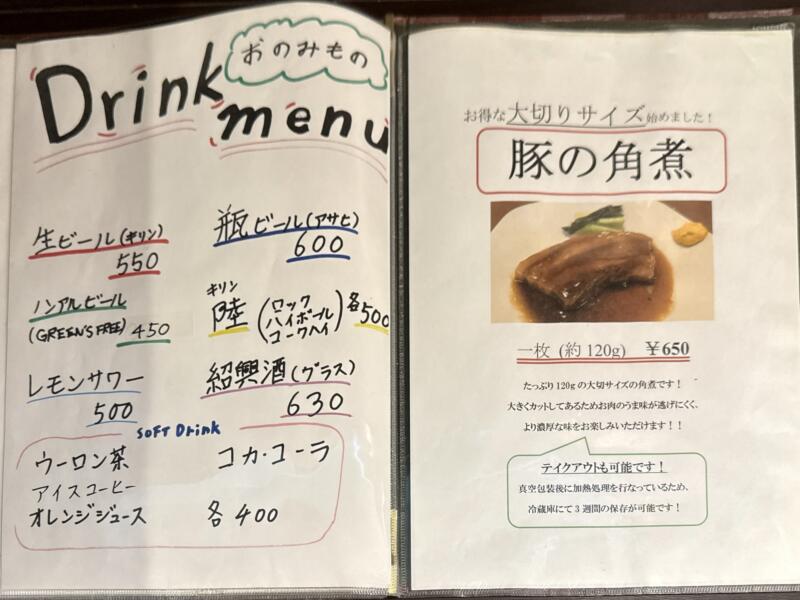 Drink
menu
おのみもの
生ビール(キリン)
550
瓶ビール(アサヒ)
600
ノンアルビール
(GREEN'S FREE) 450
キリン
陸 (ロック
ハイボール
コークハイ) 各500
レモンサワー
500
紹興酒(グラス)
630
SOFT Drink
ウーロン茶
コカ・コーラ
アイスコーヒー
オレンジジュース
各 400
お得な大切りサイズ始めました！
豚の角煮
一枚 (約 120g) ￥650
たっぷり 120g の大切サイズの角煮です！
大きくカットしてあるためお肉のうま味が逃げにくく、
より濃厚な味をお楽しみいただけます！！
テイクアウトも可能です！
真空包装後に加熱処理を行なっているため、
冷蔵庫にて 3 週間の保存が可能です！